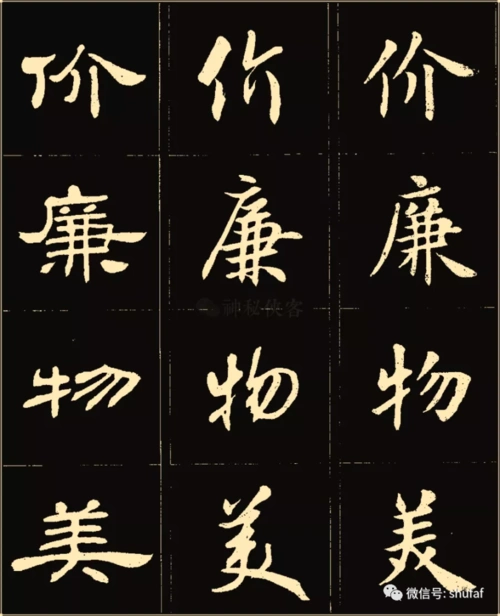 价 价 价
廉 廉 廉
神秘侠客
物 物 物
美 美 美
微信号: shufaf